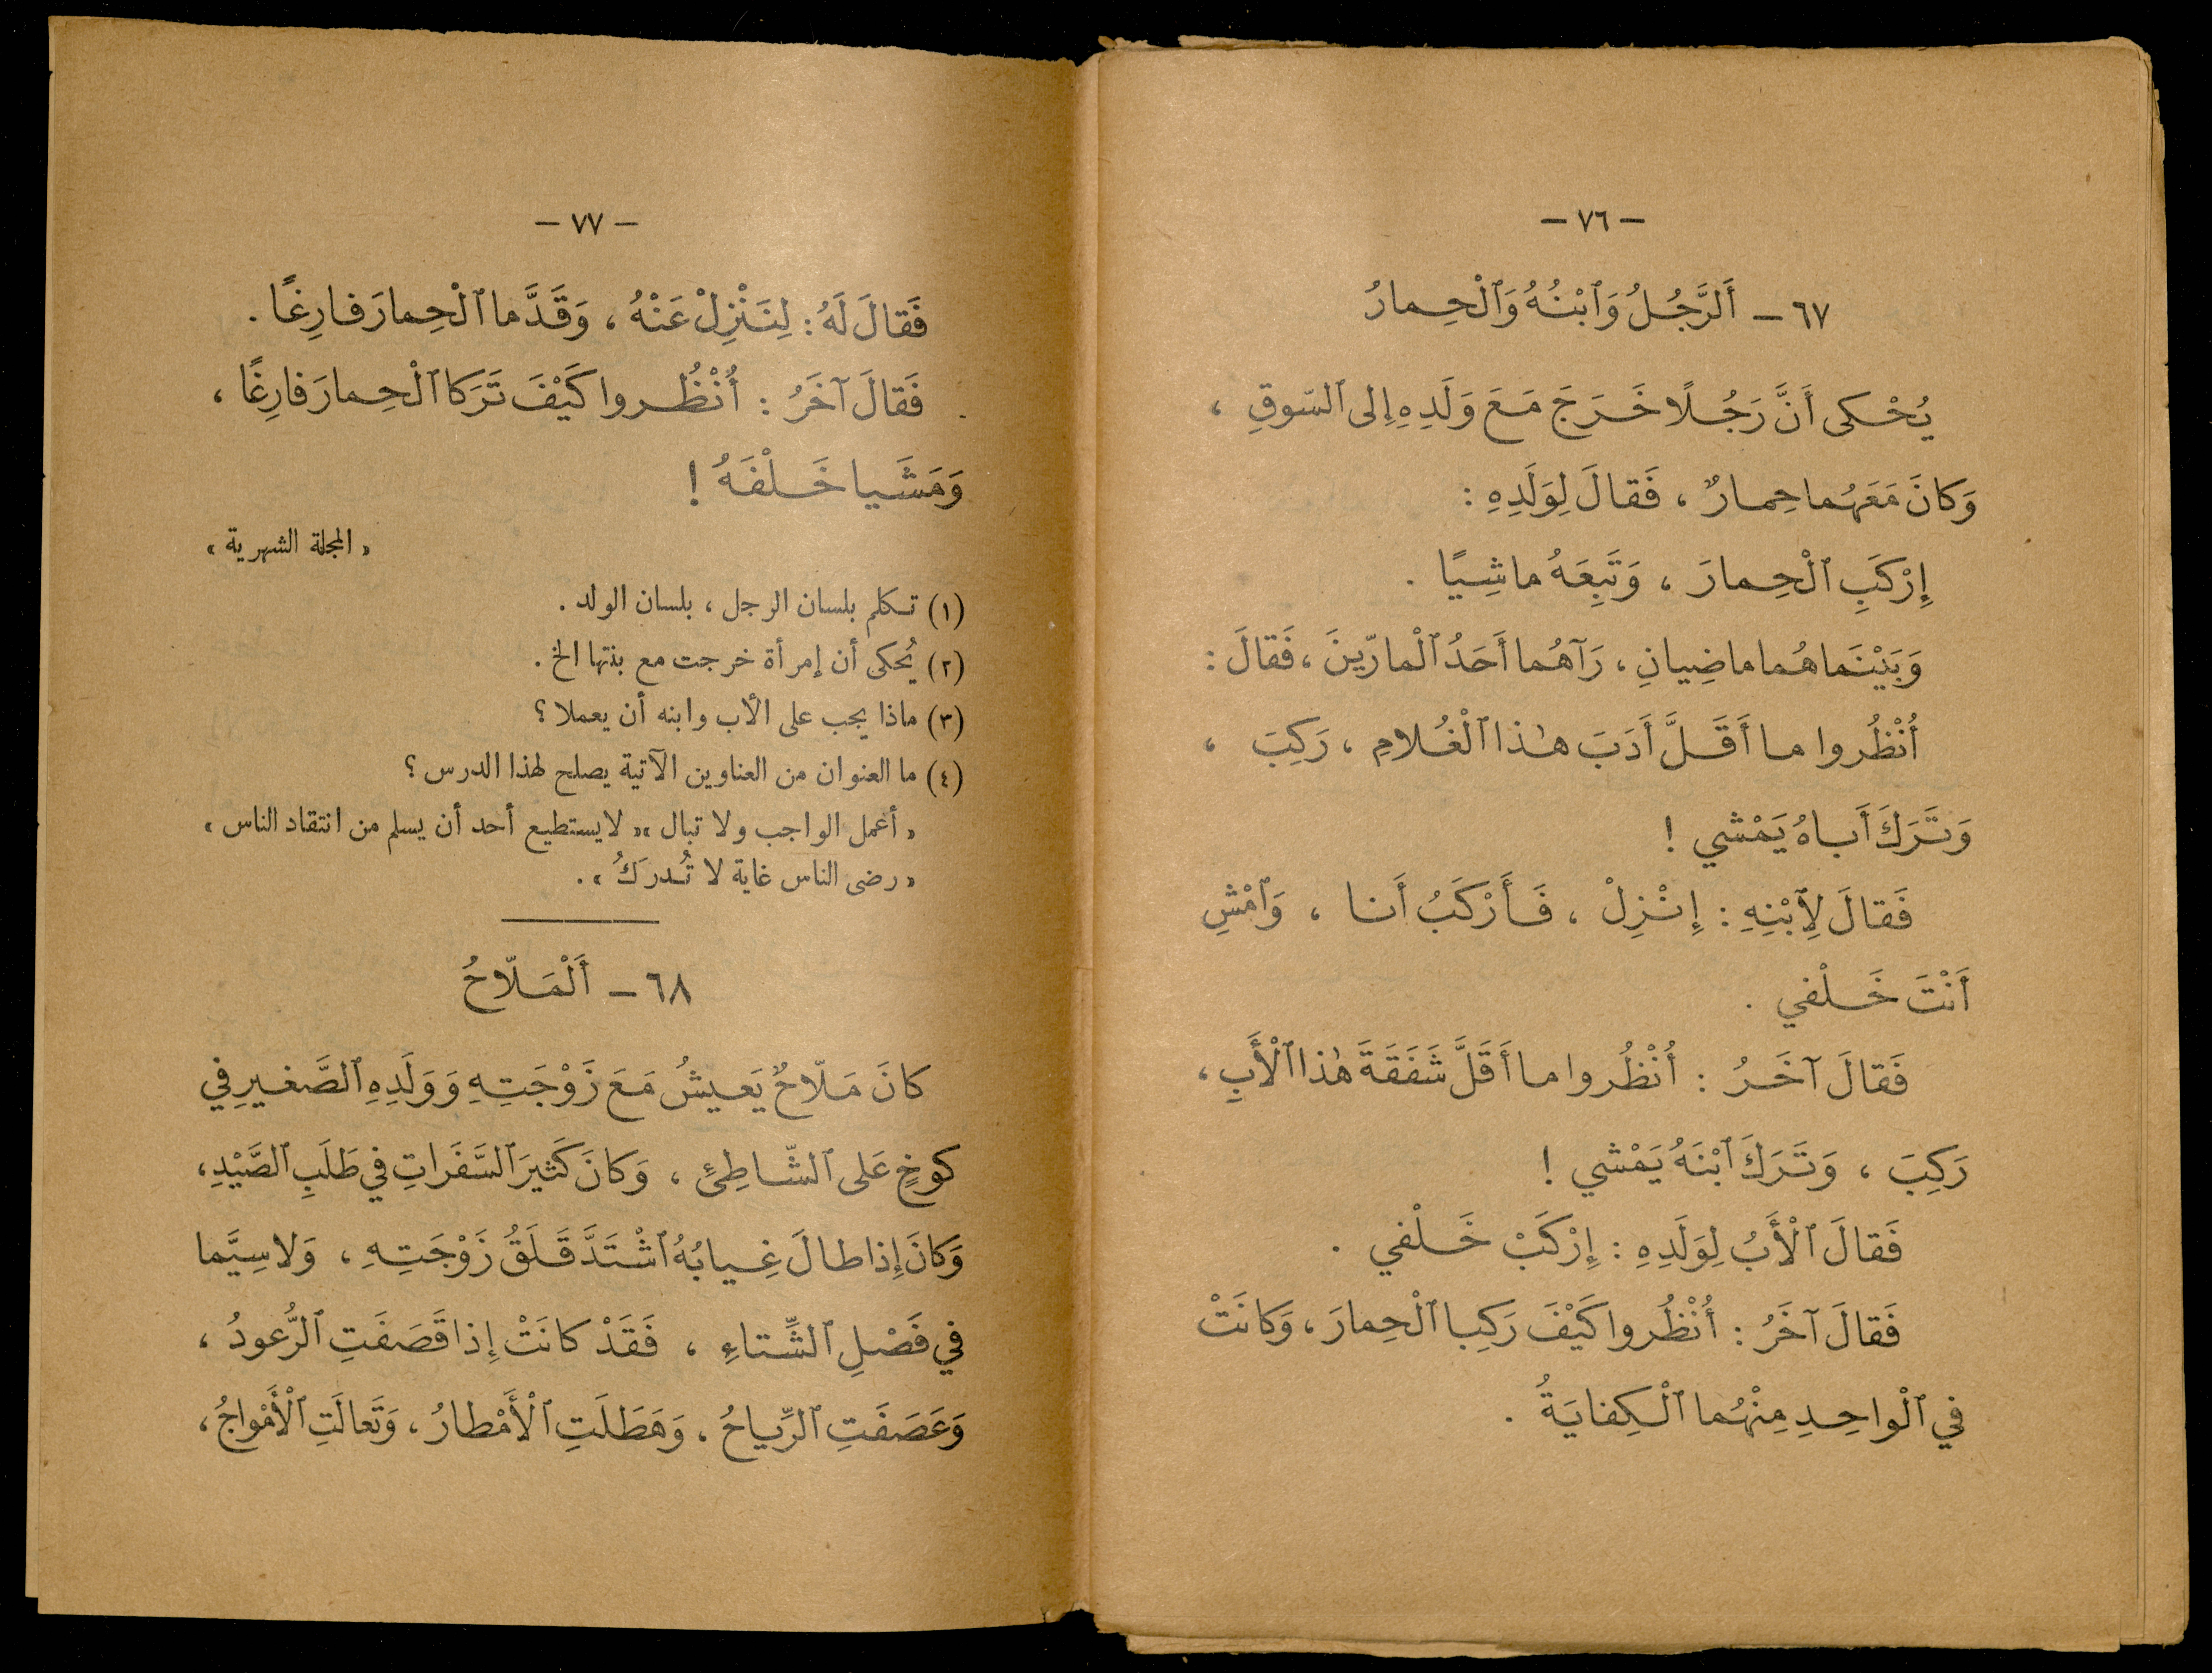 — ٧٦ —
٦٧ — أَلرَّجُلُ وَٱبْنُهُ وَٱلْحِمارُ
يُحْكى أَنَّ رَجُلًا خَرَجَ مَعَ وَلَدِهِ إِلى ٱلسّوقِ ،
وَكانَ مَعَهُما حِمارٌ ، فَقالَ لِوَلَدِهِ :
إِرْكَبِ ٱلْحِمارَ ، وَتَبِعَهُ ماشِيًا .
وَبَيْنَما هُما ماضِيانِ ، رَآهُما أَحَدُ ٱلْمارّينَ ، فَقالَ :
أُنْظُروا ما أَقَلَّ أَدَبَ هٰذا ٱلْغُلامِ ، رَكِبَ ،
وَتَرَكَ أَباهُ يَمْشي !
فَقالَ لِٱبْنِهِ : إِنْزِلْ ، فَأَرْكَبُ أَنا ، وَٱمْشِ
أَنْتَ خَلْفي .
فَقالَ آخَرُ : أُنْظُروا ما أَقَلَّ شَفَقَةَ هٰذا ٱلْأَبِ ،
رَكِبَ ، وَتَرَكَ ٱبْنَهُ يَمْشي !
فَقالَ ٱلْأَبُ لِوَلَدِهِ : إِرْكَبْ خَلْفي .
فَقالَ آخَرُ : أُنْظُروا كَيْفَ رَكِبا ٱلْحِمارَ ، وَكانَتْ
في ٱلْواحِدِ مِنْهُما ٱلْكِفايَةُ .
— ٧٧ —
فَقالَ لَهُ : لِنَنْزِلْ عَنْهُ ، وَقَدَّما ٱلْحِمارَ فارِغًا .
فَقالَ آخَرُ : أُنْظُروا كَيْفَ تَرَكا ٱلْحِمارَ فارِغًا ،
وَمَشَيا خَلْفَهُ !
« المجلة الشهرية »
(١) تكلم بلسان الرجل ، بلسان الولد .
(٢) يُحكى أن إمرأة خرجت مع بنتها الخ .
(٣) ماذا يجب على الأب وابنه أن يعملا ؟
(٤) ما العنوان من العناوين الآتية يصلح لهذا الدرس ؟
« أعمل الواجب ولا تبال »« لا يستطيع أحد أن يسلم من انتقاد الناس »
« رضى الناس غاية لا تُدرَكُ » .
٦٨ — أَلْمَلّاحُ
كانَ مَلّاحٌ يَعيشُ مَعَ زَوْجَتِهِ وَوَلَدِهِ ٱلصَّغيرِ في
كوخٍ عَلى ٱلشّاطِئِ ، وَكانَ كَثيرَ ٱلسَّفَراتِ في طَلَبِ ٱلصَّيْدِ ،
وَكانَ إِذا طالَ غِيابُهُ ٱشْتَدَّ قَلَقُ زَوْجَتِهِ ، وَلا سِيَّما
في فَصْلِ ٱلشِّتاءِ ، فَقَدْ كانَتْ إِذا قَصَفَتِ ٱلرُّعودُ ،
وَعَصَفَتِ ٱلرِّياحُ ، وَهَطَلَتِ ٱلْأَمْطارُ ، وَتَعالَتِ ٱلْأَمْواجُ ،